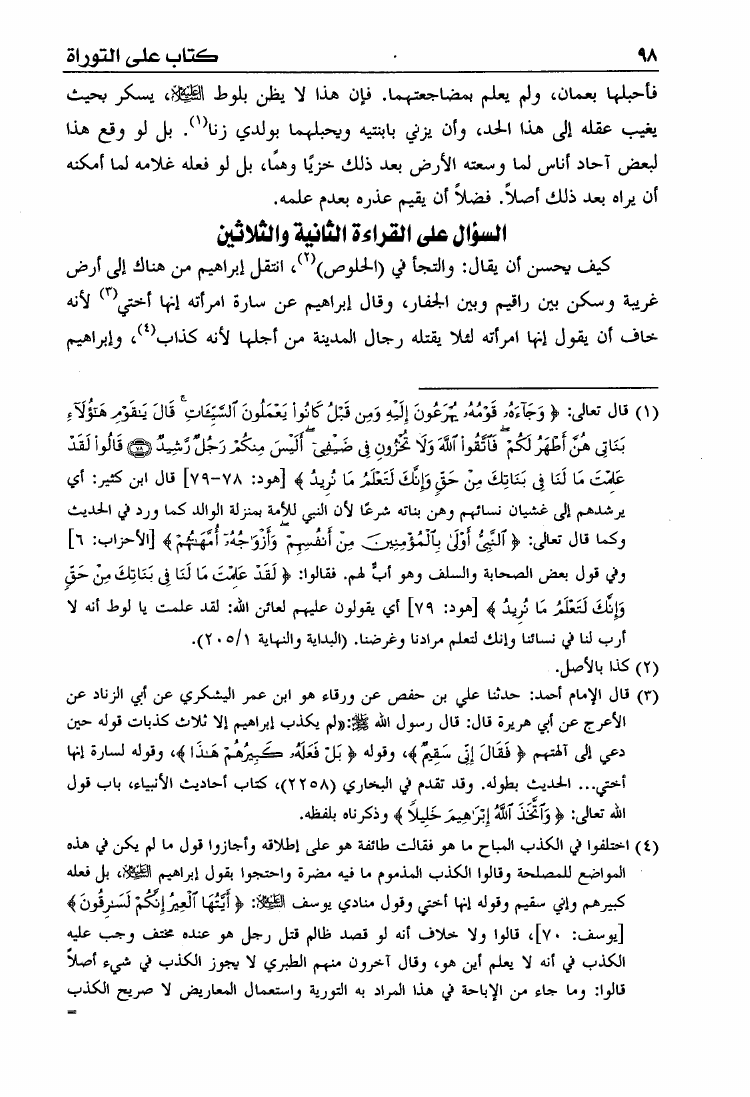 ٩٨ كتاب على التوراة
فأحبلها بعمان، ولم يعلم بمضاجعتهما. فإن هذا لا يظن بلوط عليه السلام، يسكر بحيث
يغيب عقله إلى هذا الحد، وأن يزني بابنتيه ويحبلهما بولدي زنا(١). بل لو وقع هذا
لبعض آحاد أناس لما وسعته الأرض بعد ذلك خزيًا وهمًا، بل لو فعله غلامه لما أمكنه
أن يراه بعد ذلك أصلاً. فضلاً أن يقيم عذره بعدم علمه.
السؤال على القراءة الثانية والثلاثين
كيف يحسن أن يقال: والتجأ في (الحلوص)(٢)، انتقل إبراهيم من هناك إلى أرض
غريبة وسكن بين راقيم وبين الجفار، وقال إبراهيم عن سارة امرأته إنها أختي(٣) لأنه
خاف أن يقول إنها امرأته لئلا يقتله رجال المدينة من أجلها لأنه كذاب(٤)، وإبراهيم
(١) قال تعالى: ﴿ وَجَآءَهُۥ قَوْمُهُۥ يُهْرَعُونَ إِلَيْهِ وَمِن قَبْلُ كَانُوا۟ يَعْمَلُونَ ٱلسَّيِّـَٔاتِ ۚ قَالَ يَـٰقَوْمِ هَـٰٓؤُلَآءِ
بَنَاتِى هُنَّ أَطْهَرُ لَكُمْ ۖ فَٱتَّقُوا۟ ٱللَّهَ وَلَا تُخْزُونِ فِى ضَيْفِىٓ ۖ أَلَيْسَ مِنكُمْ رَجُلٌ رَّشِيدٌ ﴿٧٨﴾ قَالُوا۟ لَقَدْ
عَلِمْتَ مَا لَنَا فِى بَنَاتِكَ مِنْ حَقٍّ وَإِنَّكَ لَتَعْلَمُ مَا نُرِيدُ ﴾ [هود: ٧٨-٧٩] قال ابن كثير: أي
يرشدهم إلى غشيان نسائهم وهن بناته شرعًا لأن النبي للأمة بمنزلة الوالد كما ورد في الحديث
وكما قال تعالى: ﴿ ٱلنَّبِىُّ أَوْلَىٰ بِٱلْمُؤْمِنِينَ مِنْ أَنفُسِهِمْ ۖ وَأَزْوَٰجُهُۥٓ أُمَّهَـٰتُهُمْ ﴾ [الأحزاب: ٦]
وفي قول بعض الصحابة والسلف وهو أبٌ لهم. فقالوا: ﴿ لَقَدْ عَلِمْتَ مَا لَنَا فِى بَنَاتِكَ مِنْ حَقٍّ
وَإِنَّكَ لَتَعْلَمُ مَا نُرِيدُ ﴾ [هود: ٧٩] أي يقولون عليهم لعائن الله: لقد علمت يا لوط أنه لا
أرب لنا في نسائنا وإنك لتعلم مرادنا وغرضنا. (البداية والنهاية ٢٠٥/١).
(٢) كذا بالأصل.
(٣) قال الإمام أحمد: حدثنا علي بن حفص عن ورقاء هو ابن عمر اليشكري عن أبي الزناد عن
الأعرج عن أبي هريرة قال: قال رسول الله ﷺ:«لم يكذب إبراهيم إلا ثلاث كذبات قوله حين
دعي إلى آلهتهم ﴿ فَقَالَ إِنِّى سَقِيمٌ ﴾، وقوله ﴿ بَلْ فَعَلَهُۥ كَبِيرُهُمْ هَـٰذَا ﴾، وقوله لسارة إنها
أختي... الحديث بطوله. وقد تقدم في البخاري (٢٢٥٨)، كتاب أحاديث الأنبياء، باب قول
الله تعالى: ﴿ وَٱتَّخَذَ ٱللَّهُ إِبْرَٰهِيمَ خَلِيلًا ﴾ وذكرناه بلفظه.
(٤) اختلفوا في الكذب المباح ما هو فقالت طائفة هو على إطلاقه وأجازوا قول ما لم يكن في هذه
المواضع للمصلحة وقالوا الكذب المذموم ما فيه مضرة واحتجوا بقول إبراهيم عليه السلام، بل فعله
كبيرهم وإني سقيم وقوله إنها أختي وقول منادي يوسف عليه السلام: ﴿ أَيَّتُهَا ٱلْعِيرُ إِنَّكُمْ لَسَـٰرِقُونَ ﴾
[يوسف: ٧٠]، قالوا ولا خلاف أنه لو قصد ظالم قتل رجل هو عنده مختف وجب عليه
الكذب في أنه لا يعلم أين هو، وقال آخرون منهم الطبري لا يجوز الكذب في شيء أصلاً
قالوا: وما جاء من الإباحة في هذا المراد به التورية واستعمال المعاريض لا صريح الكذب
=